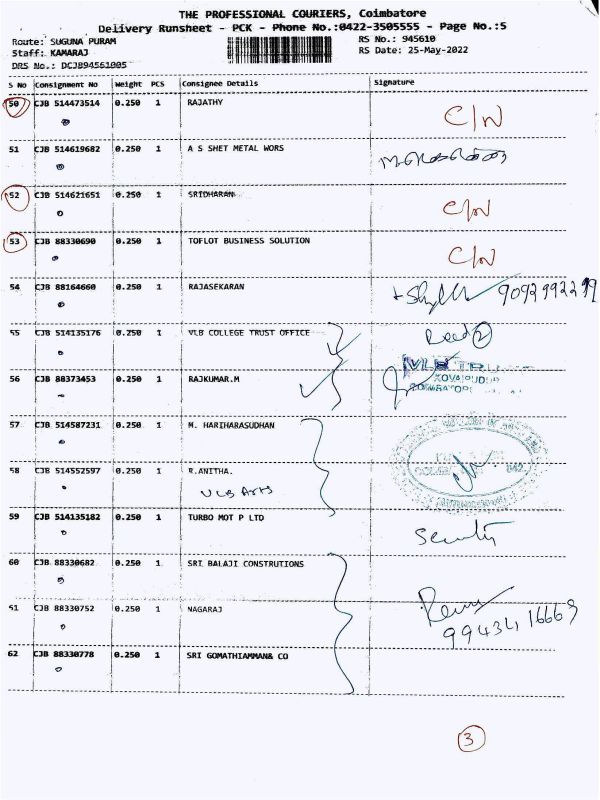 THE PROFESSIONAL COURIERS, Coimbatore
Delivery Runsheet - PCK - Phone No.:0422-3505555 - Page No.:5
Route: SUGUNA PURAM RS No.: 945610
Staff: KAMARAJ RS Date: 25-May-2022
DRS No.: DCJB94561005
S No Consignment No Weight PCS Consignee Details Signature
50 CJB 514473514 0.250 1 RAJATHY C/N
51 CJB 514619682 0.250 1 A S SHET METAL WORS
52 CJB 514621651 0.250 1 SRIDHARAN C/N
53 CJB 88330690 0.250 1 TOFLOT BUSINESS SOLUTION C/N
54 CJB 88164660 0.250 1 RAJASEKARAN 9092992299
55 CJB 514135176 0.250 1 VLB COLLEGE TRUST OFFICE Recd 2
VLB TRU
56 CJB 88373453 0.250 1 RAJKUMAR.M
57 CJB 514587231 0.250 1 M. HARIHARASUDHAN
58 CJB 514552597 0.250 1 R.ANITHA.
VLB Arts
59 CJB 514135182 0.250 1 TURBO MOT P LTD Security
60 CJB 88330682 0.250 1 SRI BALAJI CONSTRUTIONS
61 CJB 88330752 0.250 1 NAGARAJ
62 CJB 88330778 0.250 1 SRI GOMATHIAMMAN& CO
3